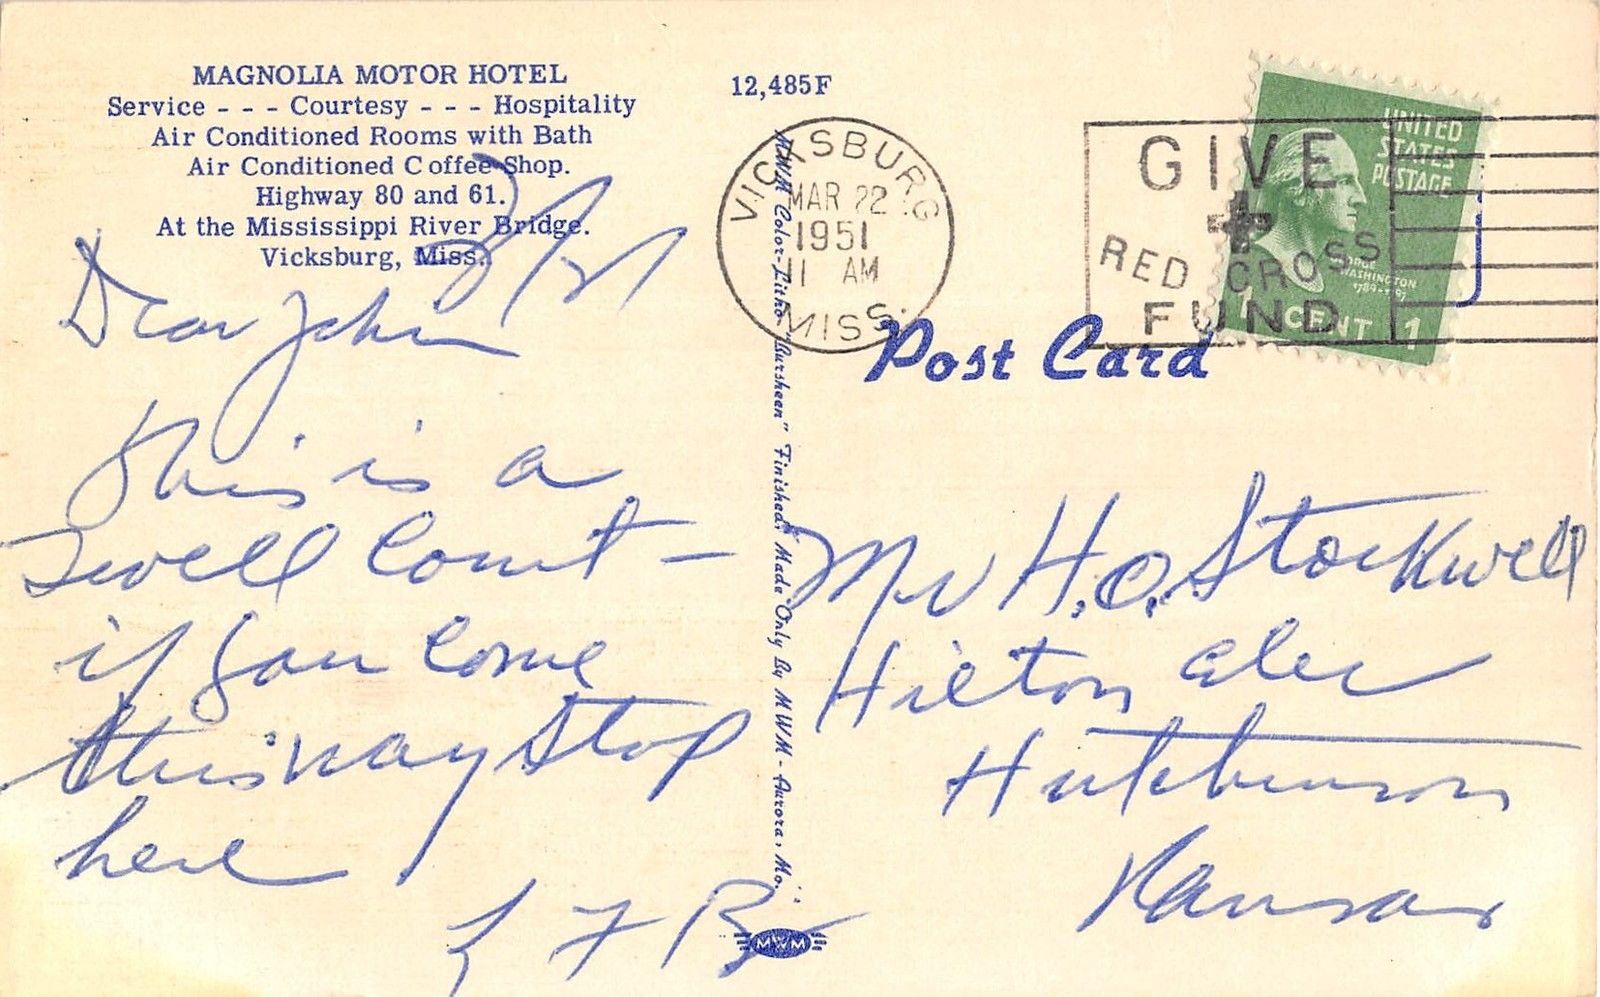 MAGNOLIA MOTOR HOTEL
Service - - - Courtesy - - - Hospitality
Air Conditioned Rooms with Bath
Air Conditioned Coffee Shop.
Highway 80 and 61.
At the Mississippi River Bridge.
Vicksburg, Miss.
Dear John
this is a
swell Court –
if you come
this way Stop
here
L F R
12,485F
VICKSBURG
MAR 22
1951
11 AM
MISS.
GIVE
RED CROSS
FUND
UNITED
STATES
POSTAGE
WASHINGTON
1789-1797
1 CENT 1
Post Card
MWM Color-Litho "Aursheen" Finished. Made Only By MWM - Aurora, Mo.
MWM
Mr H.O. Stockwell
Hilton
Hutchinson
Kansas